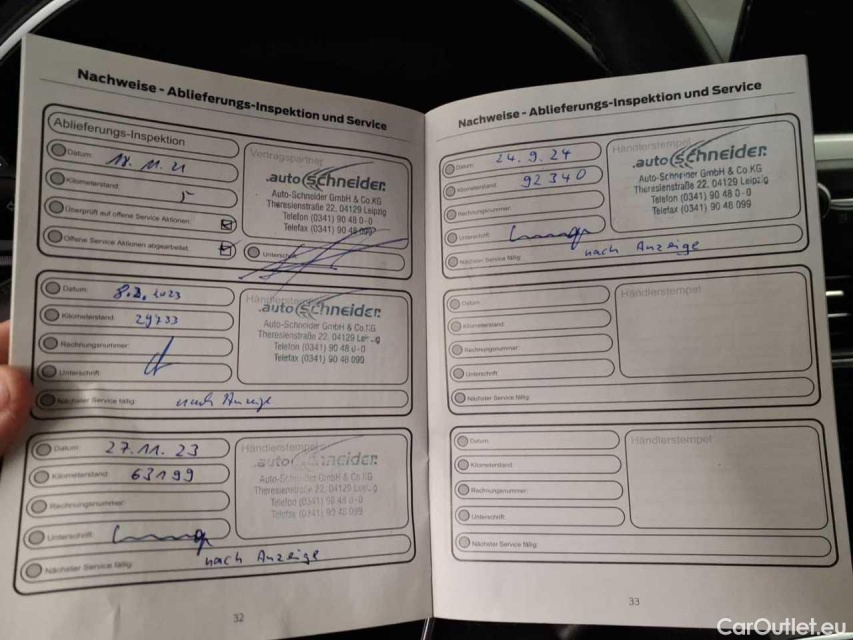 Nachweise - Ablieferungs-Inspektion und Service
Ablieferungs-Inspektion
Datum: 18.11.21
Kilometerstand: 5
Überprüft auf offene Service Aktionen:
Offene Service Aktionen abgearbeitet:
Vertragspartner
.autoSchneider.
Auto-Schneider GmbH & Co.KG
Theresienstraße 22, 04129 Leipzig
Telefon (0341) 90 48 0 - 0
Telefax (0341) 90 48 099
Unterschrift:
Datum: 8.2.2023
Kilometerstand: 29733
Rechnungsnummer:
Unterschrift:
Nächster Service fällig: nach Anzeige
Händlerstempel
.autoSchneider.
Auto-Schneider GmbH & Co.KG
Theresienstraße 22, 04129 Leipzig
Telefon (0341) 90 48 0 - 0
Telefax (0341) 90 48 099
Datum: 27.11.23
Kilometerstand: 63199
Rechnungsnummer:
Unterschrift:
Nächster Service fällig: nach Anzeige
Händlerstempel
.autoSchneider.
Auto-Schneider GmbH & Co.KG
Theresienstraße 22, 04129 Leipzig
Telefon (0341) 90 48 0 - 0
Telefax (0341) 90 48 099
32
Nachweise - Ablieferungs-Inspektion und Service
Datum: 24.9.24
Kilometerstand: 92340
Rechnungsnummer:
Unterschrift:
Nächster Service fällig: nach Anzeige
Händlerstempel
.autoSchneider.
Auto-Schneider GmbH & Co.KG
Theresienstraße 22, 04129 Leipzig
Telefon (0341) 90 48 0 - 0
Telefax (0341) 90 48 099
Datum:
Kilometerstand:
Rechnungsnummer:
Unterschrift:
Nächster Service fällig:
Händlerstempel
Datum:
Kilometerstand:
Rechnungsnummer:
Unterschrift:
Nächster Service fällig:
Händlerstempel
33
CarOutlet.eu